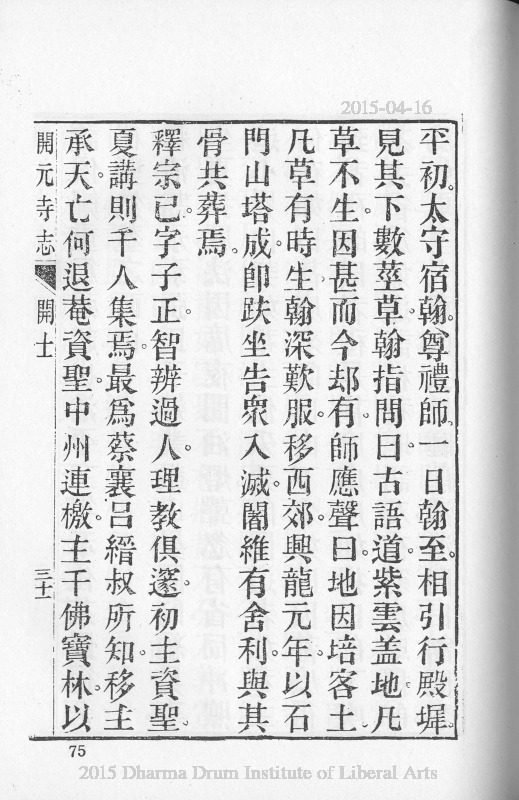 2015-04-16
平初。太守宿翰。尊禮師。一日翰至。相引行殿墀。
見其下數莖草。翰指問曰。古語道。紫雲盖地。凡
草不生。因甚而今却有。師應聲曰。地因培客土。
凡草有時生。翰深歎服。移西郊。興龍元年。以石
門山塔成。卽趺坐告衆入滅。闍維有舍利。與其
骨共葬焉。
釋宗已。字子正。智辨過人。理教俱邃。初主資聖。
夏講則千人集焉。最爲蔡襄呂縉叔所知。移主
承天。亡何退菴資聖。中州連檄。主千佛寶林。以
開元寺志 開士 三十一
75
2015 Dharma Drum Institute of Liberal Arts